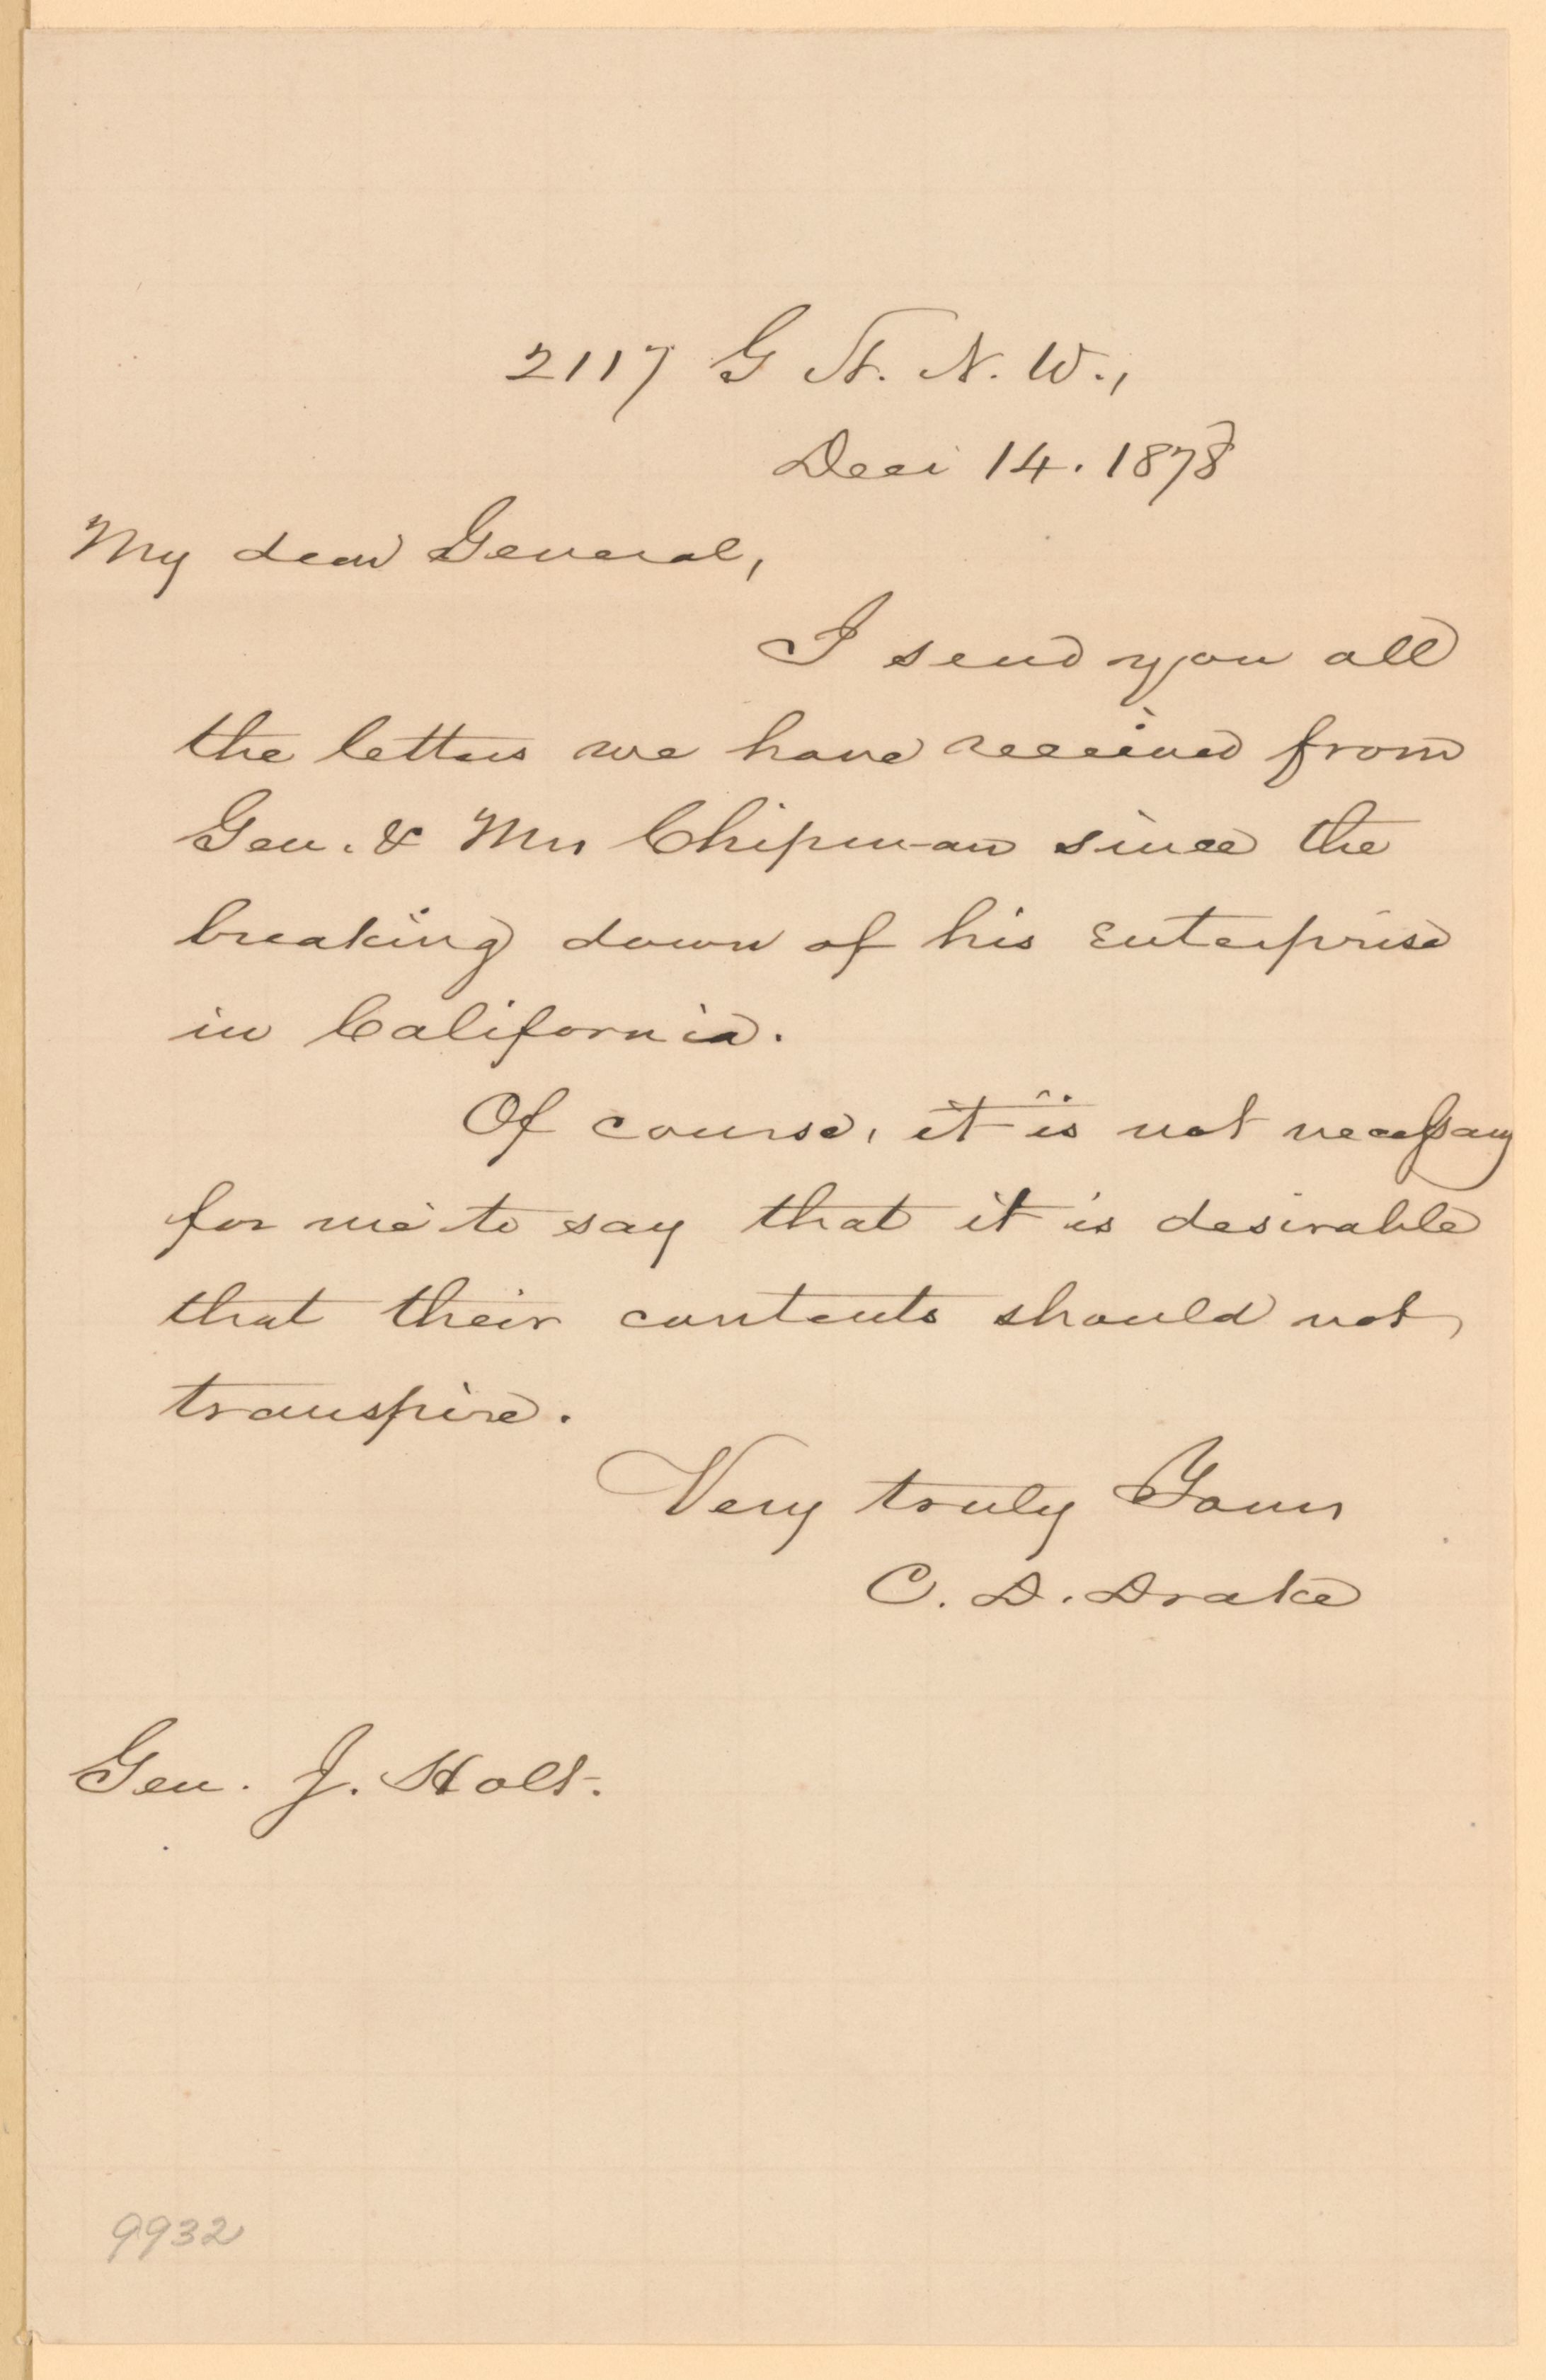 2117 G St. N. W.,
Dec: 14. 1878
My dear General,
I send you all
the letters we have received from
Gen. & Mrs Chipman since the
breaking down of his enterprise
in California.
Of course, it is not necessary
for me to say that it is desirable
that their contents should not
transpire.
Very truly Yours
C. D. Drake
Gen. J. Holt.
9932